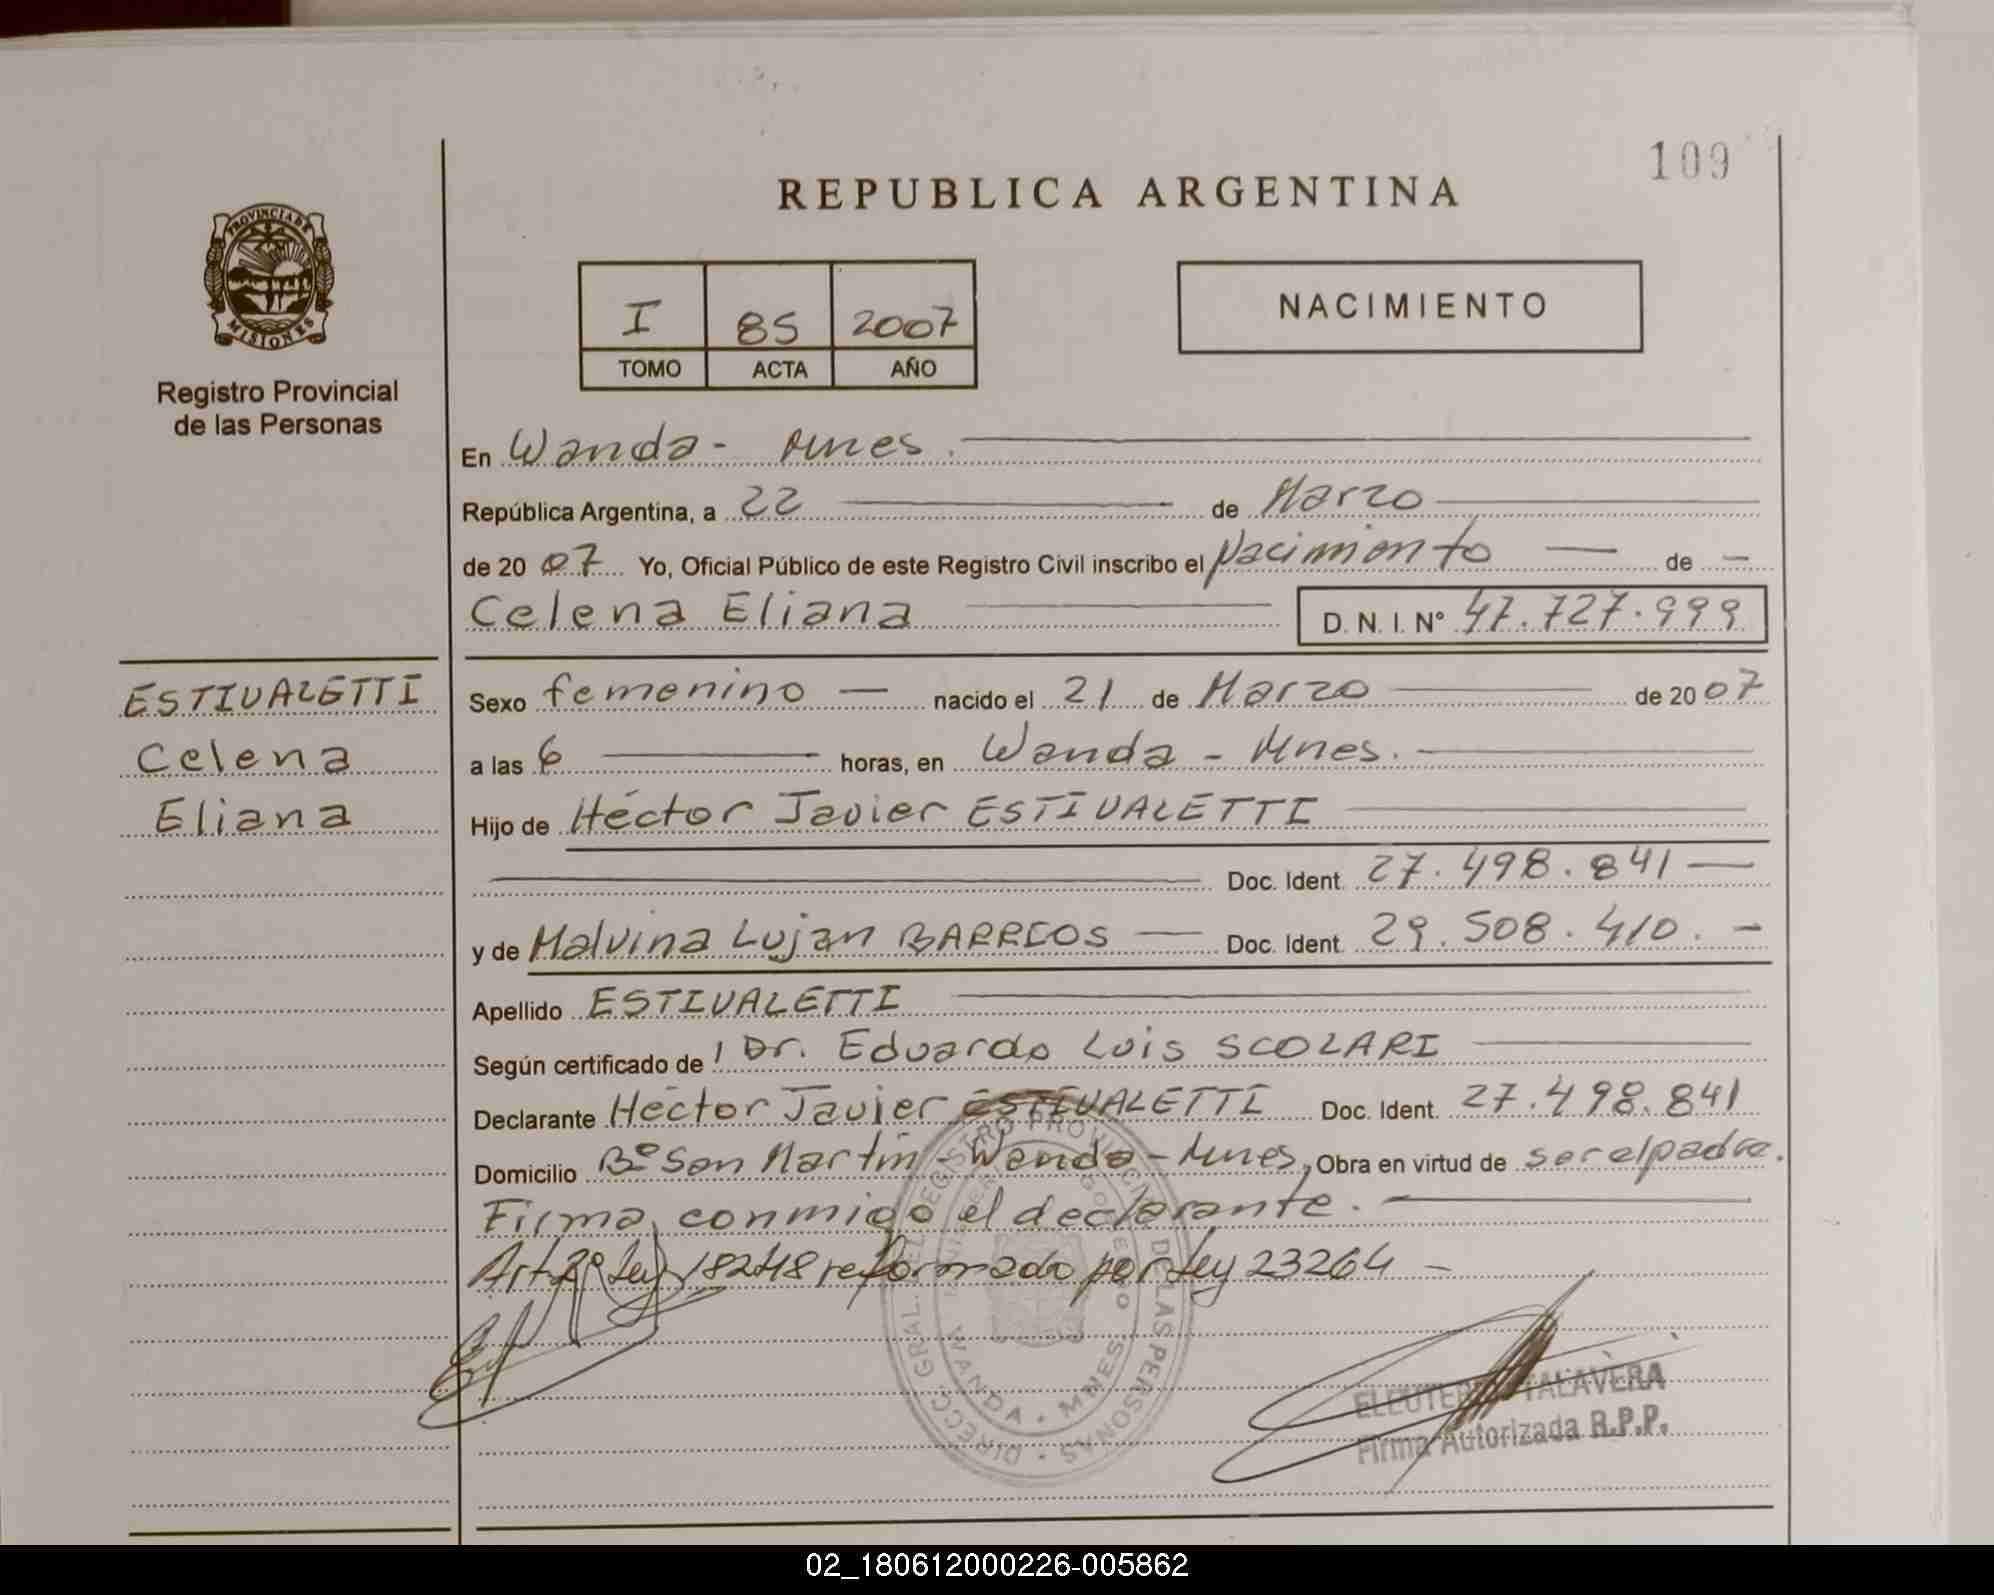 109
REPUBLICA ARGENTINA
PROVINCIA DE
MISIONES
Registro Provincial
de las Personas
I 85 2007
TOMO ACTA AÑO
NACIMIENTO
En Wanda - Mnes.
República Argentina, a 22 de Marzo
de 2007 Yo, Oficial Público de este Registro Civil inscribo el Nacimiento de
Celena Eliana D. N. I. Nº 47.727.999
ESTIVALETTI
Celena
Eliana
Sexo femenino nacido el 21 de Marzo de 2007
a las 6 horas, en Wanda - Mnes.
Hijo de Héctor Javier ESTIVALETTI
Doc. Ident. 27.498.841
y de Malvina Lujan BARRIOS Doc. Ident. 29.508.410.
Apellido ESTIVALETTI
Según certificado de Dr. Eduardo Luis SCOLARI
Declarante Héctor Javier ESTIVALETTI Doc. Ident. 27.498.841
Domicilio Bº San Martín - Wanda - Mnes, Obra en virtud de ser el padre.
Firma conmigo el declarante.
Art 2º Ley 18248 reformado por Ley 23264
DIRECC. GRAL. DEL REGISTRO PROVINCIAL DE LAS PERSONAS
WANDA · MNES
TALAVERA
Firma Autorizada R.P.P.
02_180612000226-005862